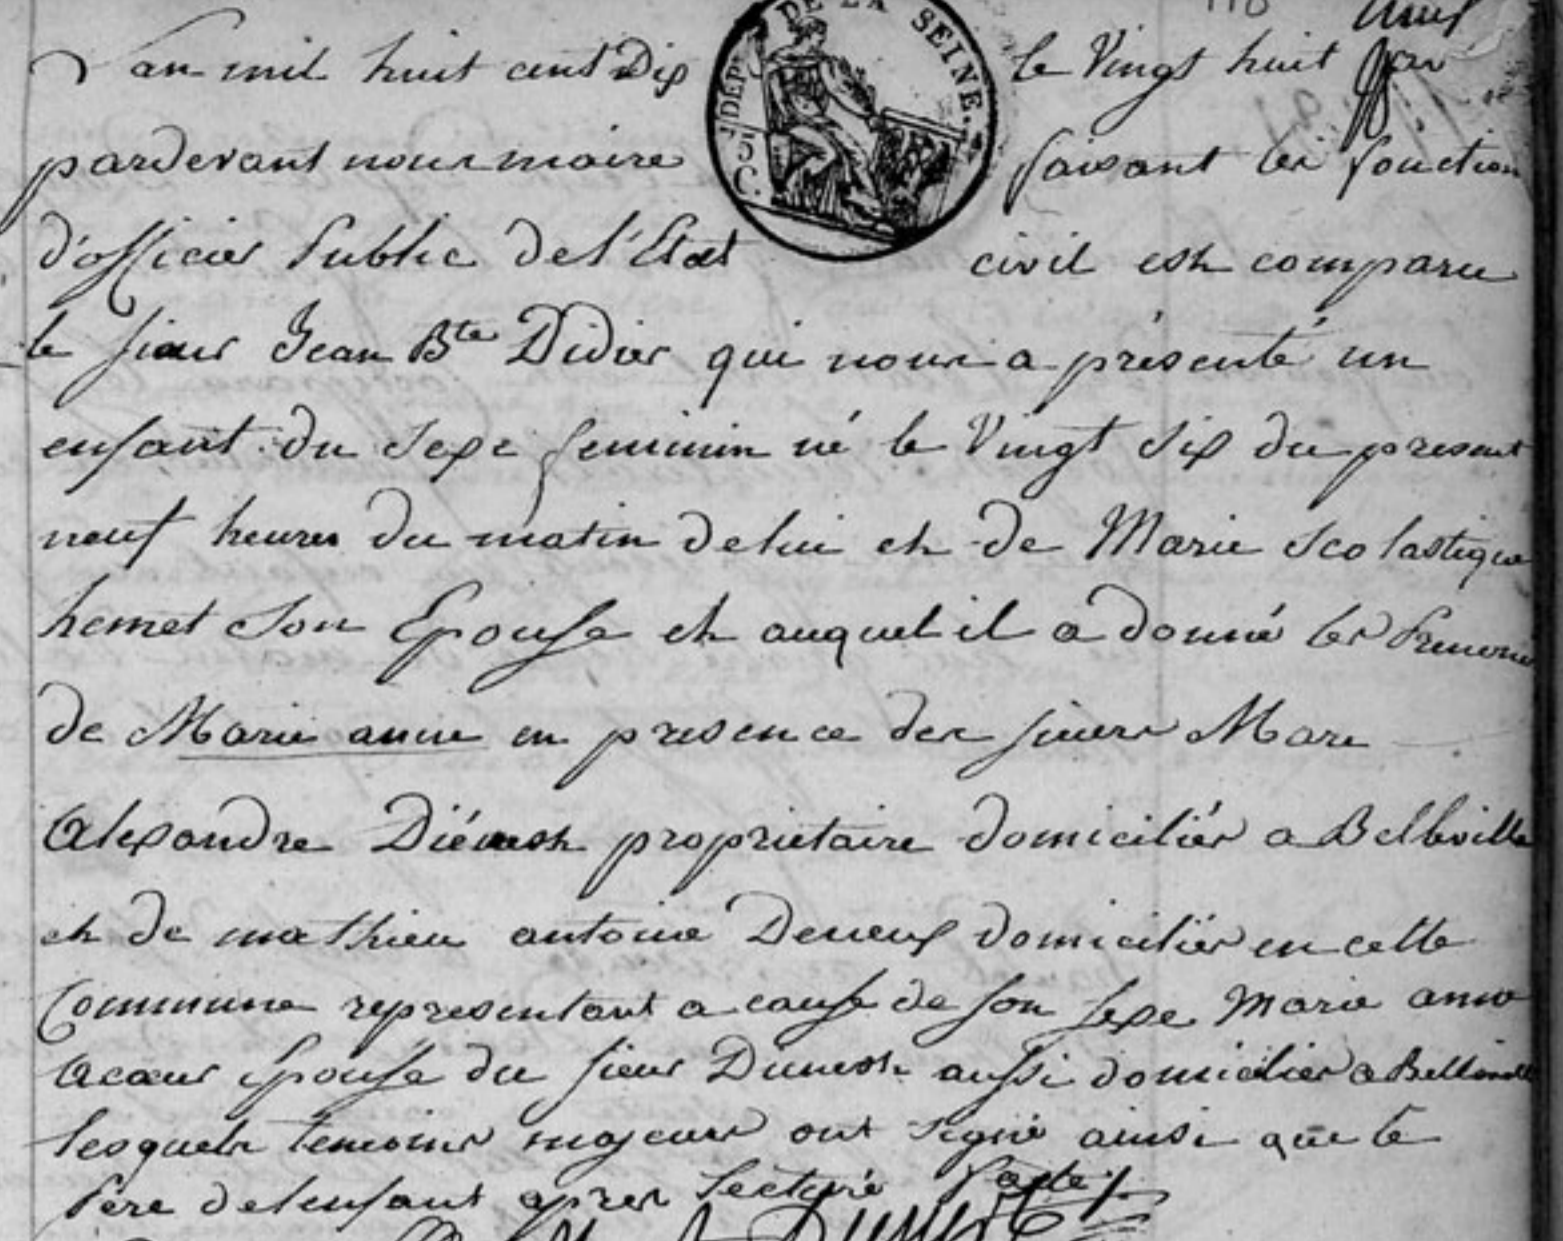 DEPT DE LA SEINE.
5 C.
L'an mil huit cent Dix le Vingt huit
pardevant nous maire faisant les fonction
d'officier Public de l'Etat civil est comparu
le sieur Jean Bte Didier qui nous a présenté un
enfant du sexe feminin né le Vingt Six du present
neuf heures du matin de lui et de Marie Scolastique
hemet son Epouse et auquel il a donné les Prenoms
de Marie anne en presence des sieurs Marc
Alexandre propriétaire domiciliés a Belleville
et de mathieu antoine domicilier en cette
Commune representant a cause de son sexe Marie anne
Epouse du sieur aussi domicilier a Belleville
lesquels temoins majeurs ont signé ainsi que le
Père de l'enfant apres lecture faite